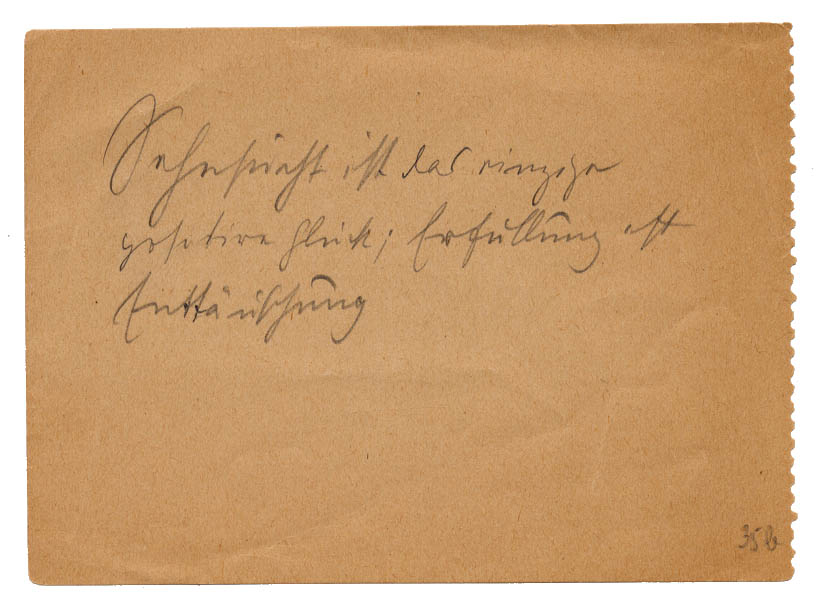 Sehnsucht ist das einzige
positive Glück; Erfüllung oft
Enttäuschung
35b